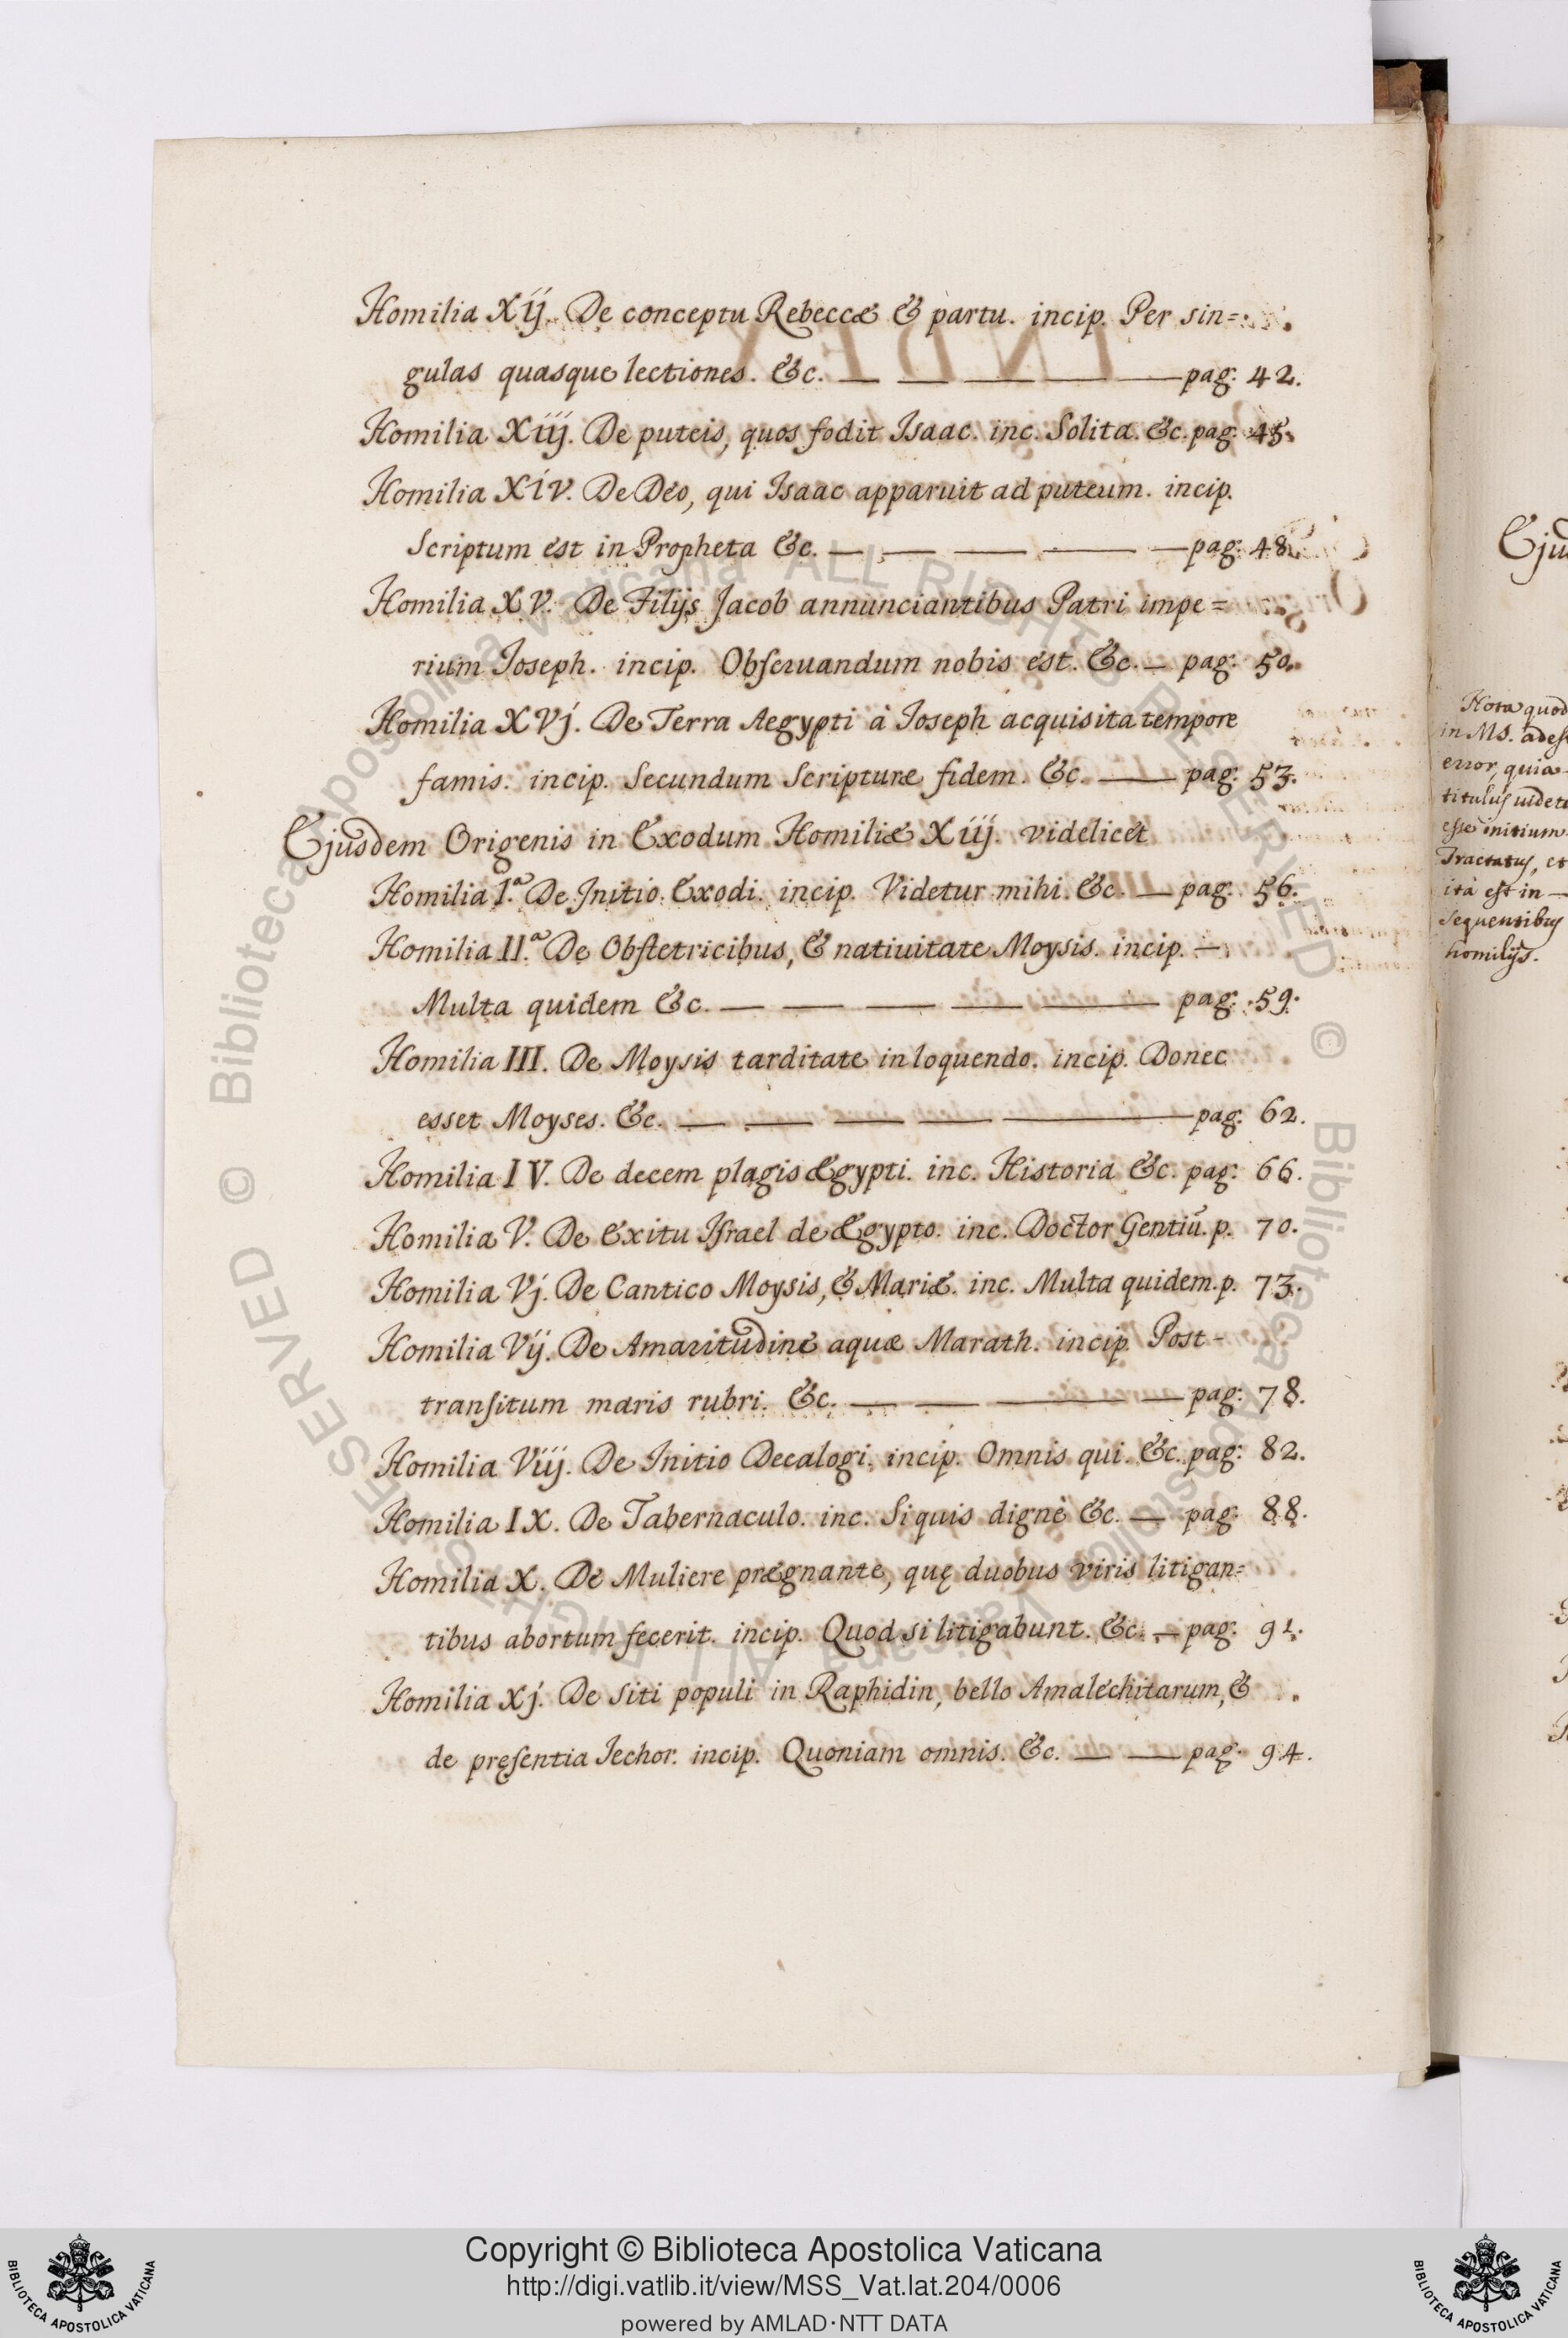 Homilia Xij. De conceptu Rebeccæ & partu. incip. Per sin=
gulas quasque lectiones. &c. — — — — — pag: 42.
Homilia Xiij. De puteis, quos fodit Isaac. inc. Solita. &c. pag: 45.
Homilia XiV. De Deo, qui Isaac apparuit ad puteum. incip.
Scriptum est in Propheta &c. — — — — — pag: 48.
Homilia XV. De Filijs Jacob annunciantibus Patri impe=
rium Joseph. incip. Obseruandum nobis est. &c. — pag: 50.
Homilia XVj. De Terra Aegypti à Joseph acquisita tempore
famis. incip. Secundum Scripturæ fidem. &c. — pag: 53.
Ejusdem Origenis in Exodum Homiliæ Xiij. videlicet
Homilia I.ª De Initio Exodi. incip. Videtur mihi. &c. — pag: 56.
Homilia II.ª De Obstetricibus, & natiuitate Moysis. incip. —
Multa quidem &c. — — — — — pag: 59.
Homilia III. De Moysis tarditate in loquendo. incip. Donec
esset Moyses. &c. — — — — — pag: 62.
Homilia IV. De decem plagis Ægypti. inc. Historia &c. pag: 66.
Homilia V. De Exitu Israel de Ægypto. inc. Doctor Gentiū. p. 70.
Homilia Vj. De Cantico Moysis, & Mariæ. inc. Multa quidem. p. 73.
Homilia Vij. De Amaritudine aquæ Marath. incip. Post-
transitum maris rubri. &c. — — — — pag: 78.
Homilia Viij. De Initio Decalogi. incip. Omnis qui. &c. pag: 82.
Homilia IX. De Tabernaculo. inc. Si quis dignè &c. — pag: 88.
Homilia X. De Muliere prægnante, quę duobus viris litigan=
tibus abortum fecerit. incip. Quod si litigabunt. &c. — pag: 91.
Homilia Xj. De siti populi in Raphidin, bello Amalechitarum, &
de pręsentia Jechor. incip. Quoniam omnis. &c. — — pag: 94.
Nota quod
in MS. adest
error, quia
titulus uidet
esse initium
Tractatus, et
ità est in —
sequentibus
homilijs.
© Biblioteca Apostolica Vaticana ALL RIGHTS RESERVED © Biblioteca Apostolica Vaticana ALL RIGHTS RESERVED
Copyright © Biblioteca Apostolica Vaticana
http://digi.vatlib.it/view/MSS_Vat.lat.204/0006
powered by AMLAD·NTT DATA
BIBLIOTECA APOSTOLICA VATICANA
BIBLIOTECA APOSTOLICA VATICANA